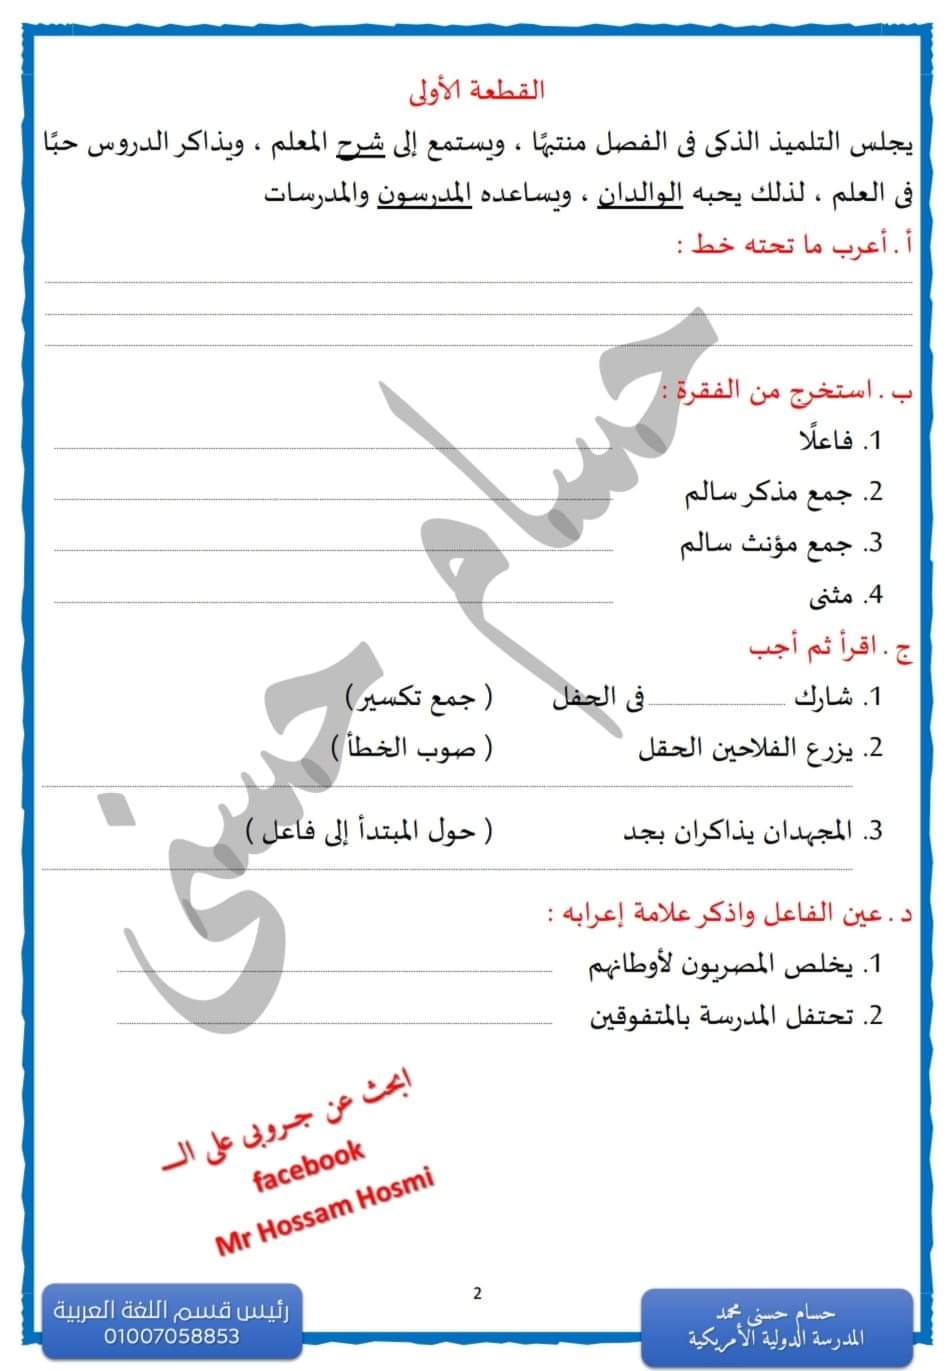 القطعة الأولى
يجلس التلميذ الذكى فى الفصل منتبهًا ، ويستمع إلى شرح المعلم ، ويذاكر الدروس حبًا
فى العلم ، لذلك يحبه الوالدان ، ويساعده المدرسون والمدرسات
أ . أعرب ما تحته خط :
ب . استخرج من الفقرة :
1. فاعلًا
2. جمع مذكر سالم
3. جمع مؤنث سالم
4. مثنى
ج . اقرأ ثم أجب
1. شارك فى الحفل ( جمع تكسير )
2. يزرع الفلاحين الحقل ( صوب الخطأ )
3. المجهدان يذاكران بجد ( حول المبتدأ إلى فاعل )
د . عين الفاعل واذكر علامة إعرابه :
1. يخلص المصريون لأوطانهم
2. تحتفل المدرسة بالمتفوقين
حسام حسنى
ابحث عن جروبى على الــ
facebook
Mr Hossam Hosmi
2
حسام حسنى محمد
المدرسة الدولية الأمريكية
رئيس قسم اللغة العربية
01007058853